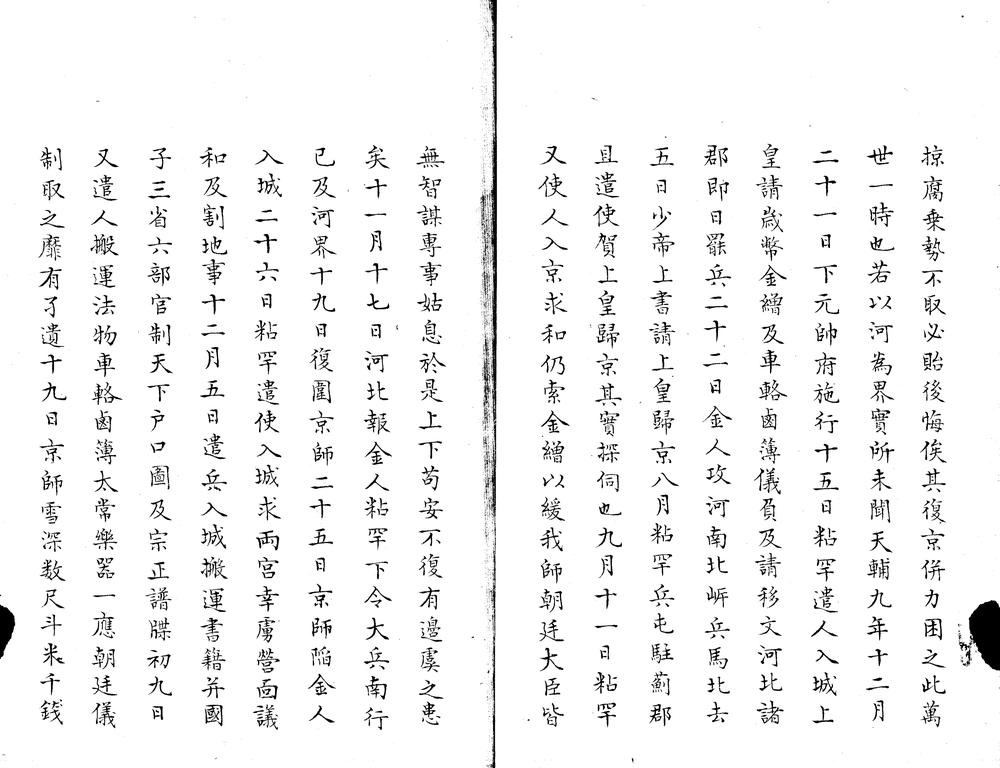 掠腐乗勢不取必貽後悔俟其復京併力困之此萬
世一時也若以河為界實所未聞天輔九年十二月
二十一日下元帥府施行十五日粘罕遣人入城上
皇請歳幣金繒及車輅鹵簿儀負及請移文河北諸
郡即日罷兵二十二日金人攻河南北岍兵馬北去
五日少帝上書請上皇歸京八月粘罕兵屯駐薊郡
且遣使賀上皇歸京其實探伺也九月十一日粘罕
又使人入京求和仍索金繒以緩我師朝廷大臣皆
無智謀専事姑息於是上下苟安不復有邊虞之患
矣十一月十七日河北報金人粘罕下令大兵南行
已及河界十九日復圍京師二十五日京師陷金人
入城二十六日粘罕遣使入城求両宮幸虜營面議
和及割地事十二月五日遣兵入城搬運書籍并國
子三省六部官制天下户口圖及宗正譜牒初九日
又遣人搬運法物車輅鹵簿太常樂器一應朝廷儀
制取之靡有孑遺十九日京師雪深数尺斗米千錢